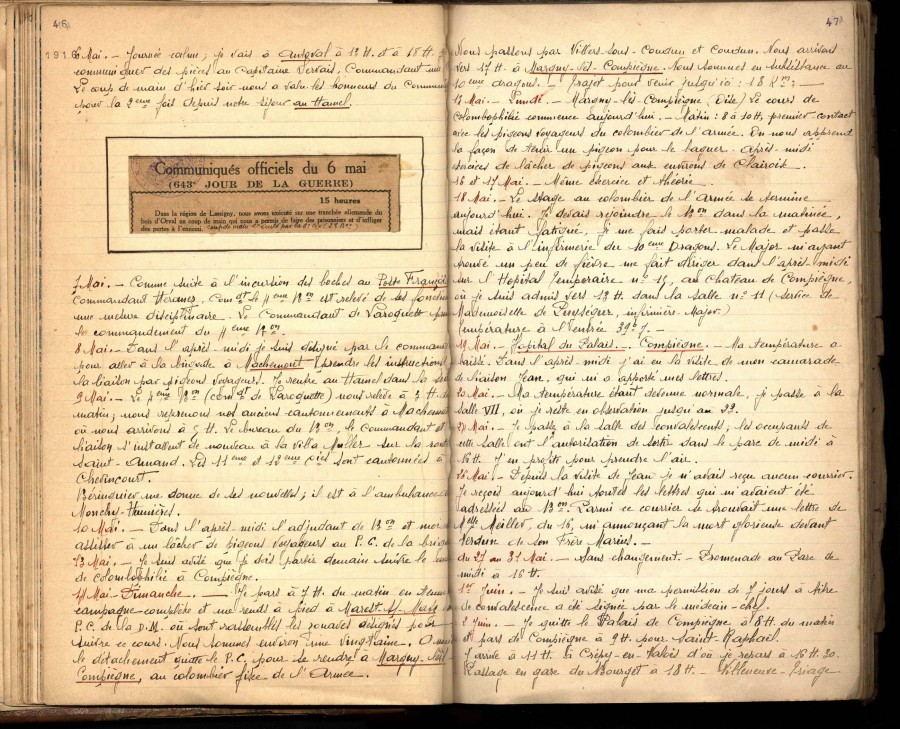 46
1916
6 Mai. — Journée calme; je vais à Antoval à 13 H. et à 18 H.
communiquer des pièces au Capitaine Vervais, Commandant
Le coup de main d'hier soir nous a valu les honneurs du Commun
pour la 2ème fois depuis notre séjour au Hamel.
Communiqués officiels du 6 mai
(643e JOUR DE LA GUERRE)
15 heures
Dans la région de Lassigny, nous avons exécuté sur une tranchée allemande du
bois d'Orval un coup de main qui nous a permis de faire des prisonniers et d'infliger
des pertes à l'ennemi.
7 Mai. — Comme suite à l'incursion des boches au Poste Français
Commandant Com dt le 4ème Bon est relevé de ses fonction
une mesure disciplinaire. Le Commandant de Laroquette
le commandement du 4ème Bon. —
8 Mai. — Dans l'après-midi je suis désigné par le command
pour aller à la brigade à Machemont prendre les instructions
la liaison par pigeons voyageurs. Je rentre au Hamel dans la
9 Mai. — Le 4ème Bon (com dt de Laroquette) nous relève à 3 H.
matin; nous reprenons nos anciens cantonnements à Machemo
où nous arrivons à 5 H. Le bureau du Bon, le Commandant et
liaison s'installent de nouveau à la villa Muller sur la route
Saint-Amand. Les 11ème et 12ème Cies sont cantonnées à
Chevincourt.
Béringuier me donne de ses nouvelles; il est à l'ambulance
Monchy-Humières.
10 Mai. — Dans l'après-midi l'adjudant de Bon et moi
assister à un lâcher de pigeons voyageurs au P.C. de la brig
13 Mai. — Je suis avisé que je dois partir demain suivre le
de colombophilie à Compiègne.
14 Mai - Dimanche. — Je pars à 7 H. du matin en tenue
campagne complète et me rends à pied à Marest s/ Matz
P.C. de la D.M. où sont rassemblés les zouaves désignés pour
suivre ce cours. Nous sommes environ une vingtaine.
le détachement quitte le P.C. pour se rendre à Margny-lès-
Compiègne, au colombier fixe de l'Armée.
47
Nous passons par Villers-sous-Coudun et Coudun. Nous arrivons
vers 17 H. à Margny-lès-Compiègne. Nous sommes en subsistance au
10ème dragons. — Trajet pour venir jusqu'ici: 18 Km: —
15 Mai. — Lundi. — Margny-lès-Compiègne (Oise) Le cours de
Colombophilie commence aujourd'hui. — Matin: 8 à 10 H, premier contact
avec les pigeons voyageurs du colombier de l'armée. On nous apprend
la façon de tenir un pigeon pour le baguer. Après-midi
exercices de lâcher de pigeons aux environs de Clairoix.
16 et 17 Mai. — Même exercice et théorie.
18 Mai. — Le stage au colombier de l'Armée se termine
aujourd'hui. Je devais rejoindre le Bon dans la matinée,
mais étant fatigué, je me fais porter malade et passe
la visite à l'infirmerie du 10ème Dragons. Le Major m'ayant
trouvé un peu de fièvre me fait diriger dans l'après-midi
sur l'Hôpital Temporaire no 15, au Château de Compiègne,
où je suis admis vers 13 H. dans la salle no 11 (Service de
Mademoiselle de Puységur, infirmière-Major.)
Température à l'entrée 39°7. —
19 Mai. — Hôpital du Palais. — Compiègne. — Ma température a
baissé. Dans l'après-midi j'ai eu la visite de mon camarade
de liaison Jean, qui m'a apporté mes lettres.
20 Mai. — Ma température étant devenue normale, je passe à la
salle VII, où je reste en observation jusqu'au 23.
24 Mai. — Je passe à la salle des convalescents; les occupants de
cette salle ont l'autorisation de sortir dans le parc de midi à
16 H. J'en profite pour prendre l'air.
26 Mai. — Depuis la visite de Jean je n'avais reçu aucun courrier.
Je reçois aujourd'hui toutes les lettres qui m'avaient été
adressées au 13 on. Parmi ce courrier se trouvait une lettre de
Melle Meiller, du 16, m'annonçant la mort glorieuse devant
Verdun de son Frère Marius. —
du 27 au 31 Mai. — Sans changement. — Promenade au Parc de
midi à 16 H.
1er Juin. — Je suis avisé que ma permission de 7 jours à titre
de convalescence a été signée par le médecin-chef.
2 Juin. — Je quitte le Palais de Compiègne à 8 H. du matin
et pars de Compiègne à 9 H. pour Saint-Raphaël.
J'arrive à 11 H. à Crépy-en-Valois d'où je repars à 16 H. 30.
Passage en gare du Bourget à 18 H. — Villeneuve-Triage